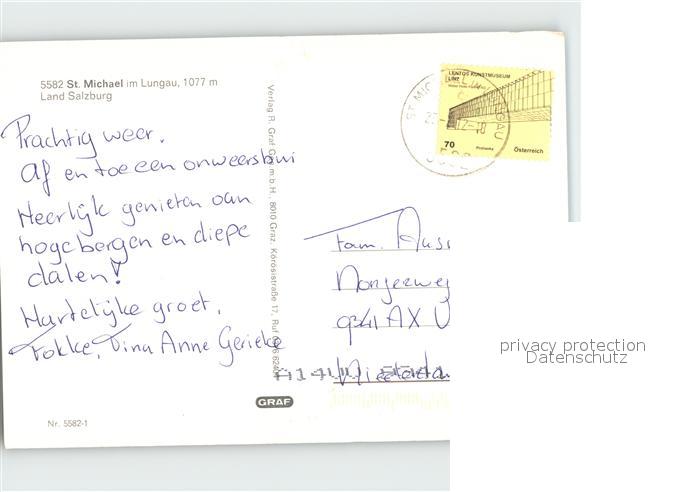 5582 St. Michael im Lungau, 1077 m
Land Salzburg
Prachtig weer.
Af en toe een onweersbui
Heerlijk genieten van
hoge bergen en diepe
dalen!
Hartelijke groet,
Fokke, Tina Anne Gerieke
Nr. 5582-1
Verlag R. Graf G.m.b.H., 8010 Graz, Körösistraße 17, Ruf
GRAF
ST. MICH GAU
LENTOS KUNSTMUSEUM
LINZ
70 Österreich
Fam.
9341 AX
A140
privacy protection
Datenschutz